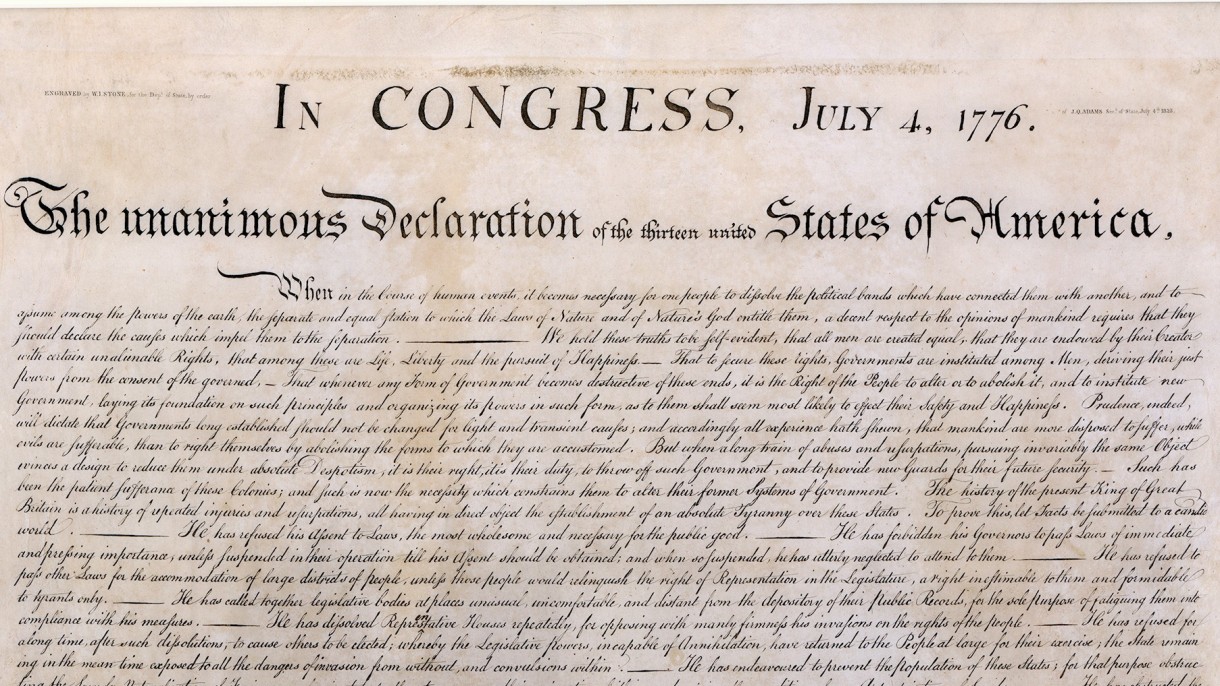 ENGRAVED by W.I. STONE, for the Dept. of State, by order
of J.Q. ADAMS Secy. of State, July 4th 1823.
IN CONGRESS, JULY 4, 1776.
The unanimous Declaration of the thirteen united States of America,
When in the Course of human events, it becomes necessary for one people to dissolve the political bands which have connected them with another, and to
assume among the powers of the earth, the separate and equal station to which the Laws of Nature and of Nature's God entitle them, a decent respect to the opinions of mankind requires that they
should declare the causes which impel them to the separation. — We hold these truths to be self-evident, that all men are created equal, that they are endowed by their Creator
with certain unalienable Rights, that among these are Life, Liberty and the pursuit of Happiness. — That to secure these rights, Governments are instituted among Men, deriving their just
powers from the consent of the governed, — That whenever any Form of Government becomes destructive of these ends, it is the Right of the People to alter or to abolish it, and to institute new
Government, laying its foundation on such principles and organizing its powers in such form, as to them shall seem most likely to effect their Safety and Happiness. Prudence, indeed,
will dictate that Governments long established should not be changed for light and transient causes; and accordingly all experience hath shewn, that mankind are more disposed to suffer, while
evils are sufferable, than to right themselves by abolishing the forms to which they are accustomed. But when a long train of abuses and usurpations, pursuing invariably the same Object
evinces a design to reduce them under absolute Despotism, it is their right, it is their duty, to throw off such Government, and to provide new Guards for their future security. — Such has
been the patient sufferance of these Colonies; and such is now the necessity which constrains them to alter their former Systems of Government. The history of the present King of Great
Britain is a history of repeated injuries and usurpations, all having in direct object the establishment of an absolute Tyranny over these States. To prove this, let Facts be submitted to a candid
world. — He has refused his Assent to Laws, the most wholesome and necessary for the public good. — He has forbidden his Governors to pass Laws of immediate
and pressing importance, unless suspended in their operation till his Assent should be obtained; and when so suspended, he has utterly neglected to attend to them. — He has refused to
pass other Laws for the accommodation of large districts of people, unless those people would relinquish the right of Representation in the Legislature, a right inestimable to them and formidable
to tyrants only. — He has called together legislative bodies at places unusual, uncomfortable, and distant from the depository of their Public Records, for the sole purpose of fatiguing them into
compliance with his measures. — He has dissolved Representative Houses repeatedly, for opposing with manly firmness his invasions on the rights of the people. — He has refused for
a long time, after such dissolutions, to cause others to be elected; whereby the Legislative powers, incapable of Annihilation, have returned to the People at large for their exercise; the State remain
ing in the mean time exposed to all the dangers of invasion from without, and convulsions within. — He has endeavoured to prevent the population of these States; for that purpose obstruc